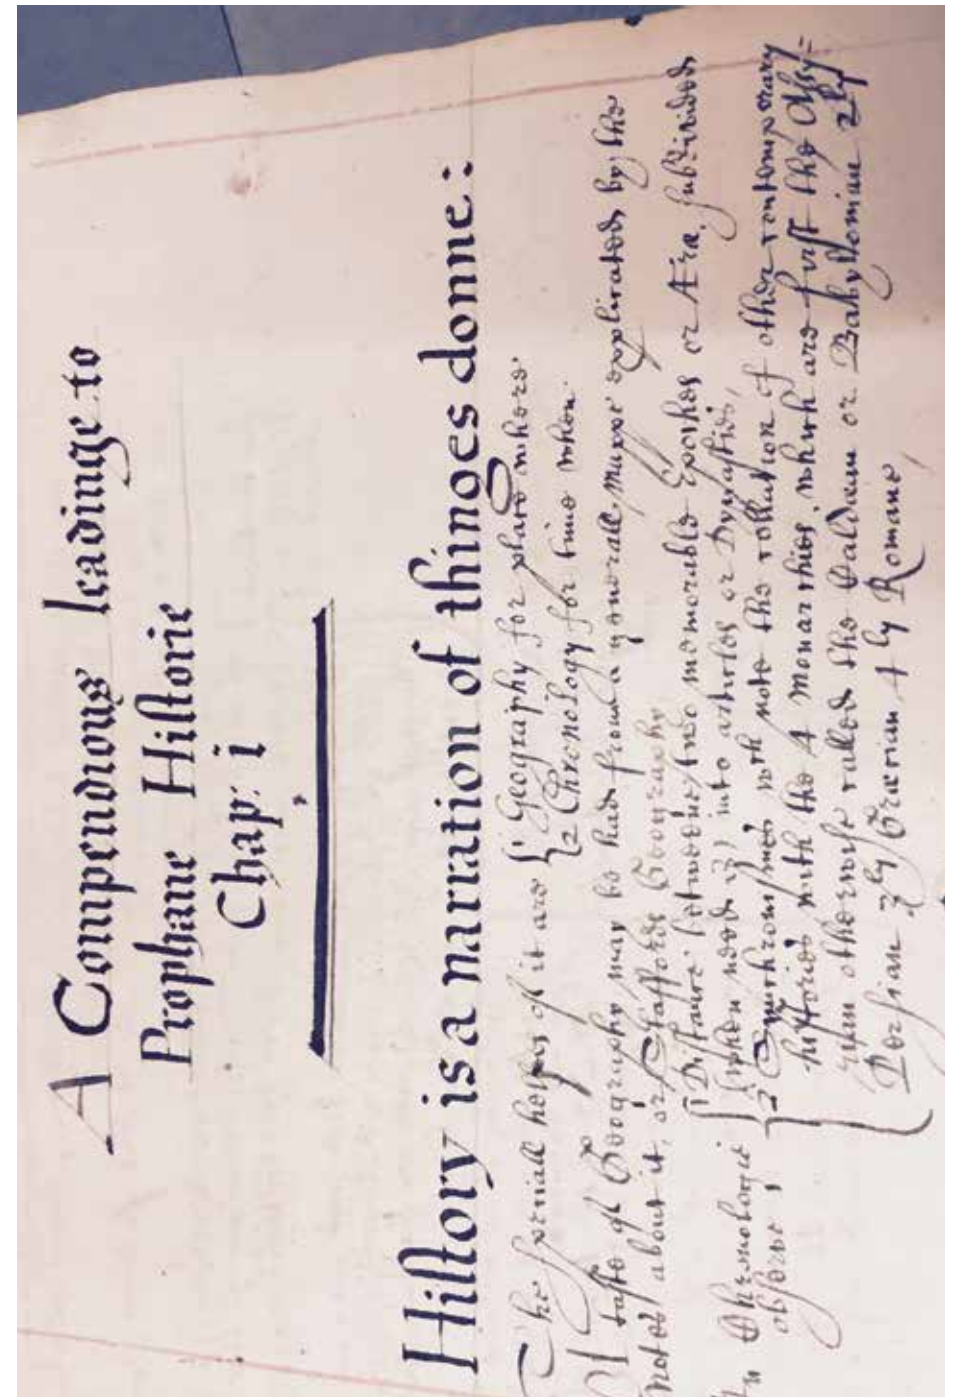 A Compendious leadinge to
Prophane Historie
Chap: i
History is a narration of thinges donne:
The speciall helpes of it are { 1 Geography for place where
2 Chronology for time when.
A taste of Geography may be had from a generall Mappe explicated by the
notes about it, or Staffords Geography
In Chronologie observe,
{ 1 Distance betweene two memorable Epoches or Æra, subdivided
(when need is) into articles or Dynasties,
2 Synchronismes wch note the relation of other contemporary
histories with the 4 Monarchies, which are first the Assy=
rian otherwise called the Caldaean or Babylonian 2ly
Persian 3ly Graecian 4ly Romane,